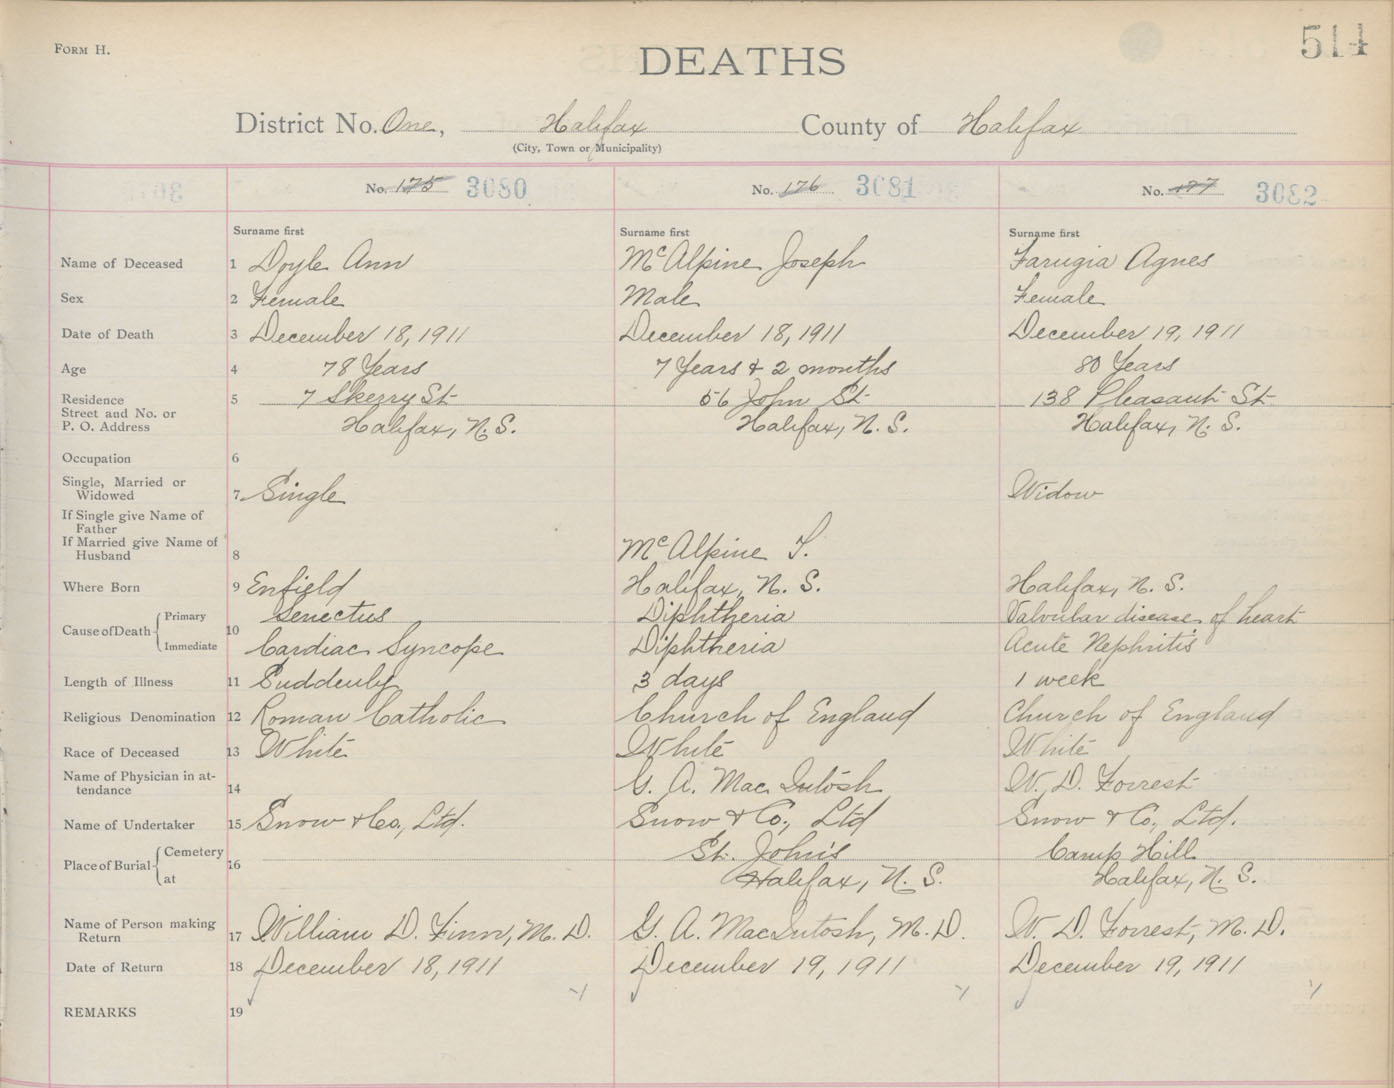 FORM H.
514
DEATHS
District No. One, Halifax County of Halifax
(City, Town or Municipality)
No. 175 3080 No. 176 3081 No. 177 3082
Surname first Surname first Surname first
Name of Deceased 1 Doyle Ann McAlpine Joseph Farugia Agnes
Sex 2 Female Male Female
Date of Death 3 December 18, 1911 December 18, 1911 December 19, 1911
Age 4 78 Years 7 Years & 2 months 80 Years
Residence 5 7 Skerry St 56 John St 138 Pleasant St
Street and No. or
P. O. Address Halifax, N. S. Halifax, N. S. Halifax, N. S.
Occupation 6
Single, Married or
Widowed 7 Single Widow
If Single give Name of
Father
If Married give Name of
Husband 8 McAlpine
Where Born 9 Enfield Halifax, N. S. Halifax, N. S.
Cause of Death Primary 10 Senectus Diphtheria Valvular disease of heart
Immediate Cardiac Syncope Diphtheria Acute Nephritis
Length of Illness 11 Suddenly 3 days 1 week
Religious Denomination 12 Roman Catholic Church of England Church of England
Race of Deceased 13 White White White
Name of Physician in at-
tendance 14 G. A. MacIntosh W. D. Forrest
Name of Undertaker 15 Snow & Co., Ltd. Snow & Co., Ltd Snow & Co., Ltd.
Place of Burial Cemetery 16 St. John's Camp Hill
at Halifax, N. S. Halifax, N. S.
Name of Person making
Return 17 William D. Finn, M. D. G. A. MacIntosh, M. D. W. D. Forrest, M. D.
Date of Return 18 December 18, 1911 December 19, 1911 December 19, 1911
REMARKS 19